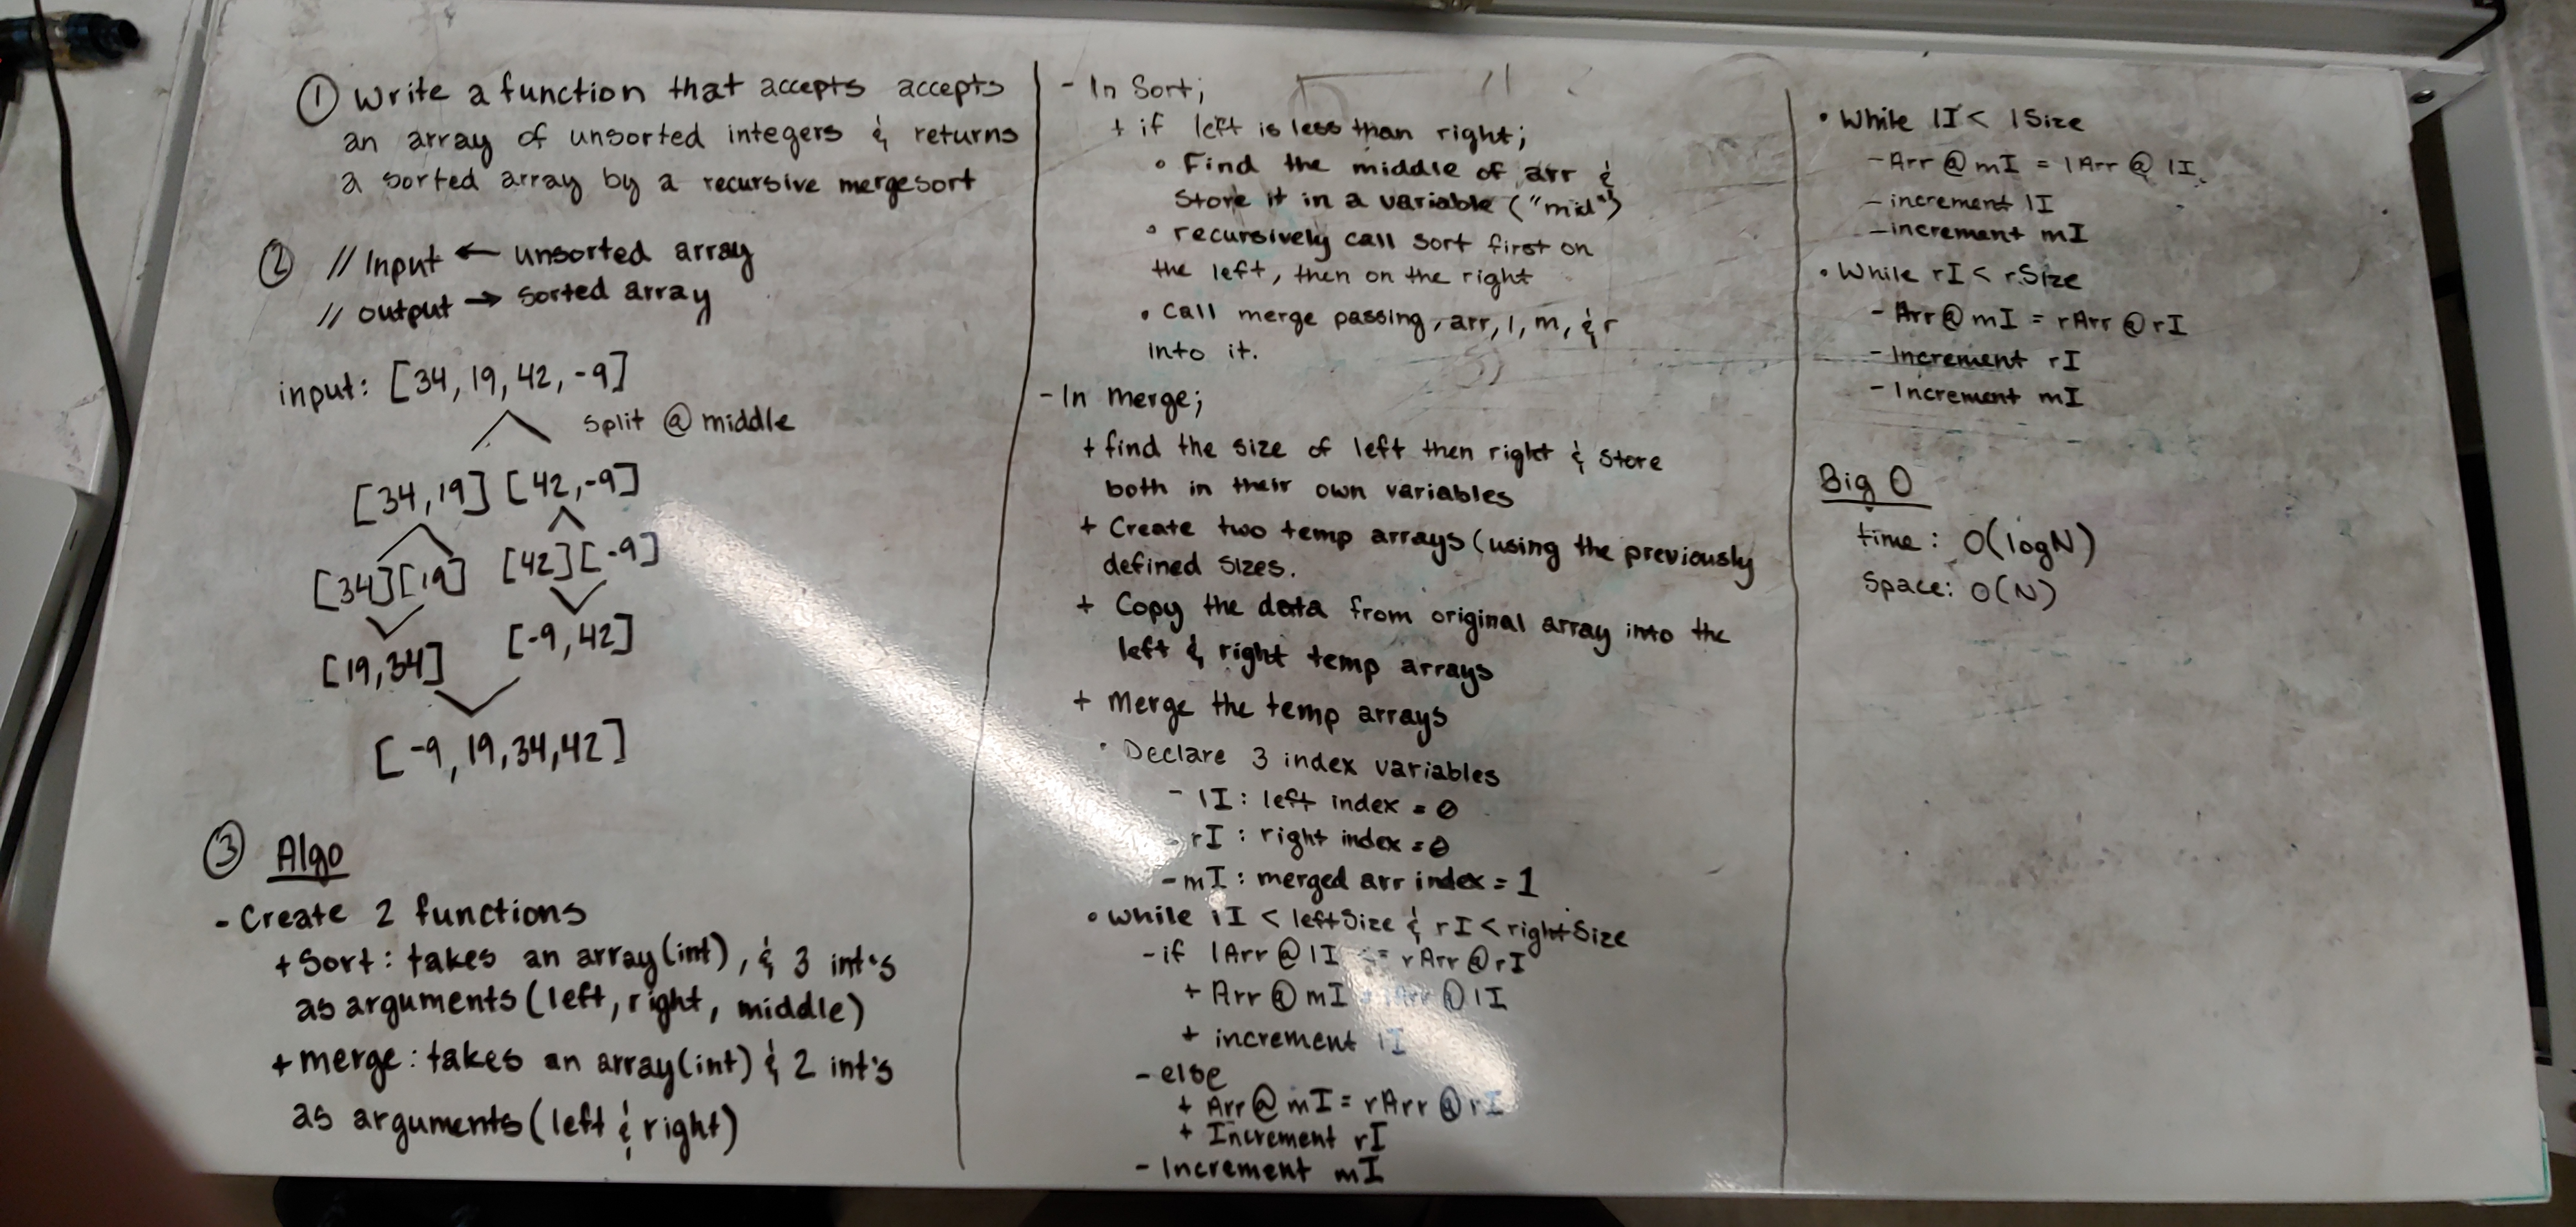 ① Write a function that accepts accepts
an array of unsorted integers & returns
a sorted array by a recursive mergesort
② // Input ← unsorted array
// output → sorted array
input: [34, 19, 42, -9]
split @ middle
[34,19] [42,-9]
[34][19] [42][-9]
[19,34] [-9,42]
[-9, 19, 34, 42]
③ Algo
- Create 2 functions
+ Sort: takes an array(int), & 3 int's
as arguments (left, right, middle)
+ merge: takes an array(int) & 2 int's
as arguments (left & right)
- In Sort;
+ if left is less than right;
• Find the middle of arr &
store it in a variable ("mid")
• recursively call sort first on
the left, then on the right
• call merge passing, arr, l, m, & r
into it.
- In merge;
+ find the size of left then right & store
both in their own variables
+ Create two temp arrays (using the previously
defined sizes.
+ Copy the data from original array into the
left & right temp arrays
+ Merge the temp arrays
• Declare 3 index variables
- lI: left index = 0
- rI: right index = 0
- mI: merged arr index = 1
• while lI < leftSize & rI < rightSize
- if lArr @ lI rArr @ rI
+ Arr @ mI = lArr @ lI
+ increment lI
- else
+ Arr @ mI = rArr @ rI
+ Increment rI
- Increment mI
• While lI < lSize
- Arr @ mI = lArr @ lI
- increment lI
- increment mI
• While rI < rSize
- Arr @ mI = rArr @ rI
- Increment rI
- Increment mI
Big O
time: O(logN)
Space: O(N)